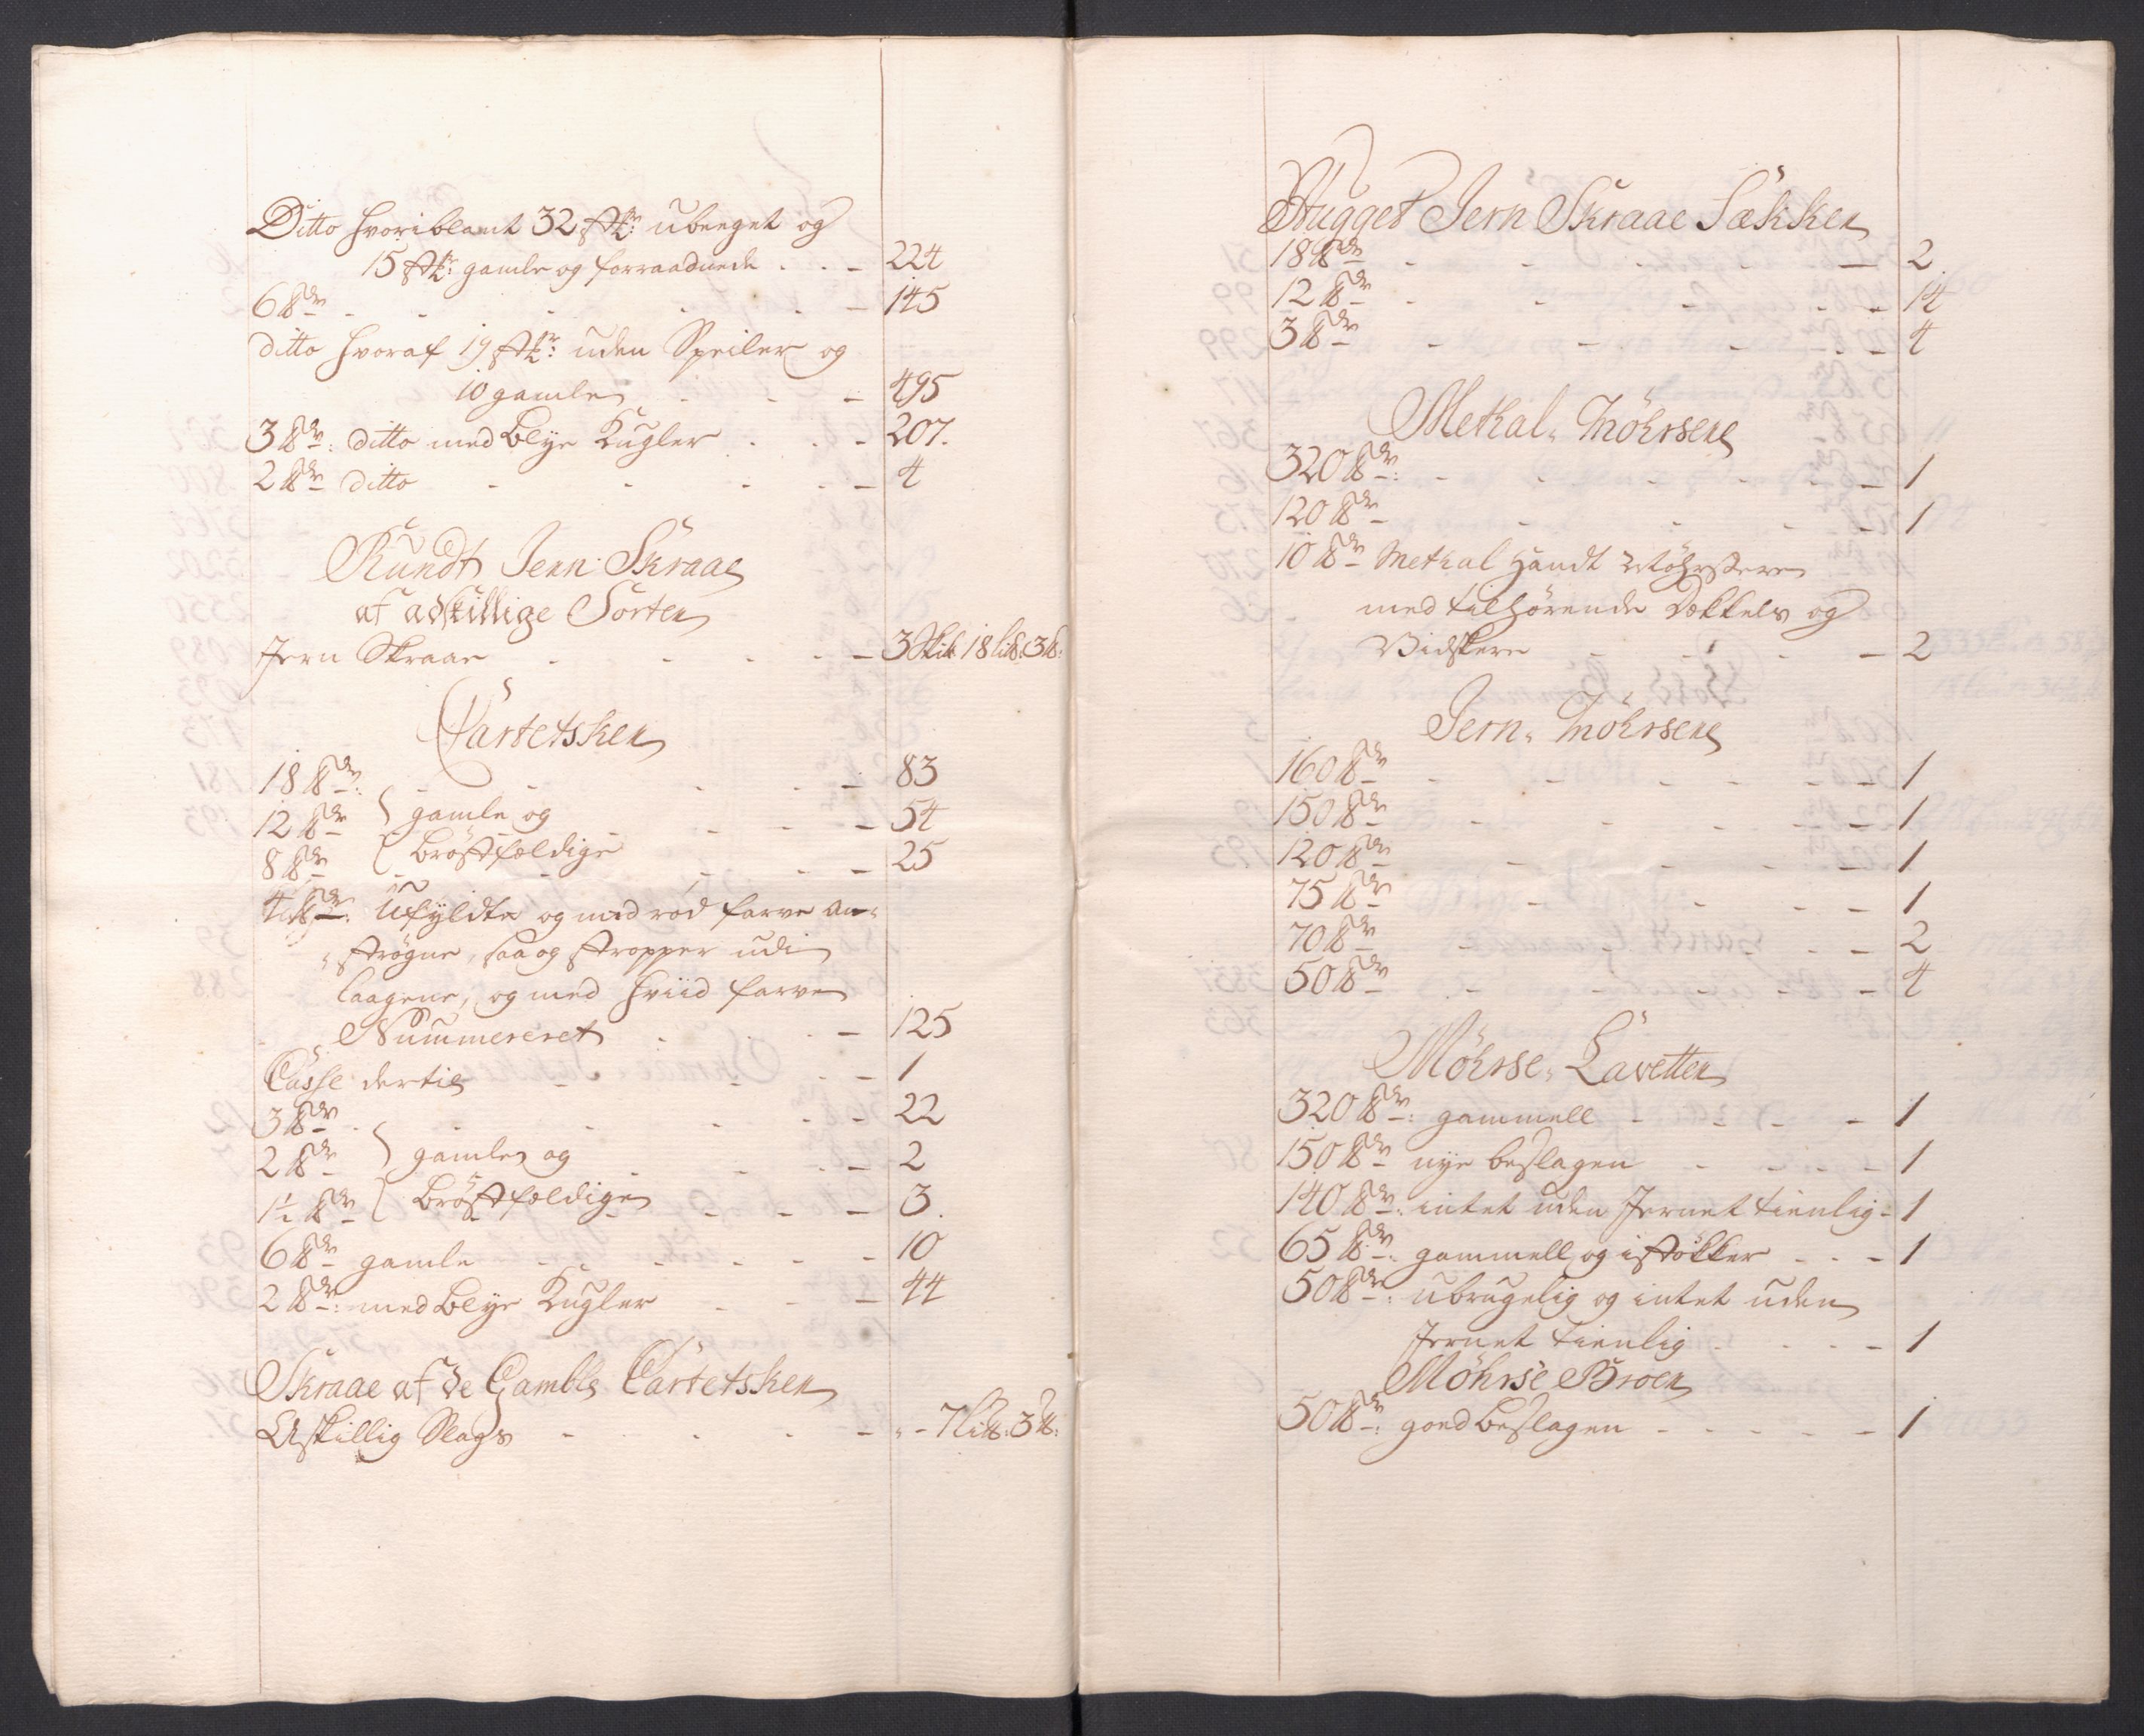 Ditto hvoriblant 32 Stk: ubeeget og
15 Stk: gamle og forraadnede - - - 224
6 ℔dr - - - 145
ditto hvoraf 19 Stk: uden Speiler og
10 gamle - - - 495
3 ℔dr: ditto med Blye Kugler - - - 207.
2 ℔dr ditto - - - 4
Rundt Jern Skraae
af adskillige Sorter
Jern Skraae - - - 3 Skil 18 Li℔: 3 ℔:
Cartetsken
18 ℔dr: - - - 83
12 ℔dr } gamle og - - - 54
8 ℔dr { brøstfældige - - - 25
4 ℔dr: Ufyldte og med rød farve an-
strøgne, saa og stropper udi
laagene, og med hviid farve
Nummereret - - - 125
Casse dertil - - - 1
3 ℔dr - - - 22
2 ℔dr } gamle og - - - 2
1½ ℔dr { brøstfældige - - - 3.
6 ℔dr gamle - - - 10
2 ℔dr: med Blye Kugler - - - 44
Skraae af de Gamble Cartetsken
Askillig Slags - - - 7 Li℔: 3 ℔:
Hugget Jern Skraae Sækker
18 ℔dr - - - 2
12 ℔dr - - - 14
3 ℔dr - - - 4
Methal- Möhrsere
320 ℔dr: - - - 1
120 ℔dr - - - 1
10 ℔dr Methal Handt Möhrsere
med tilhørende Dækkels og
Vidskere - - - 2
Jern- Möhrsere
160 ℔dr - - - 1
150 ℔dr - - - 1
120 ℔dr - - - 1
75 ℔dr - - - 1
70 ℔dr - - - 2
50 ℔dr - - - 4
Möhrse- Lavetter
320 ℔dr: gammell - - - 1
150 ℔dr nye beslagen - - - 1
140 ℔dr: intet uden Jernet tienlig - 1
65 ℔dr: gammell og i støkker - - - 1
50 ℔dr: ubrugelig og intet uden
Jernet tienlig - - - 1
Möhrse Broer
50 ℔dr: goed beslagen - - - 1